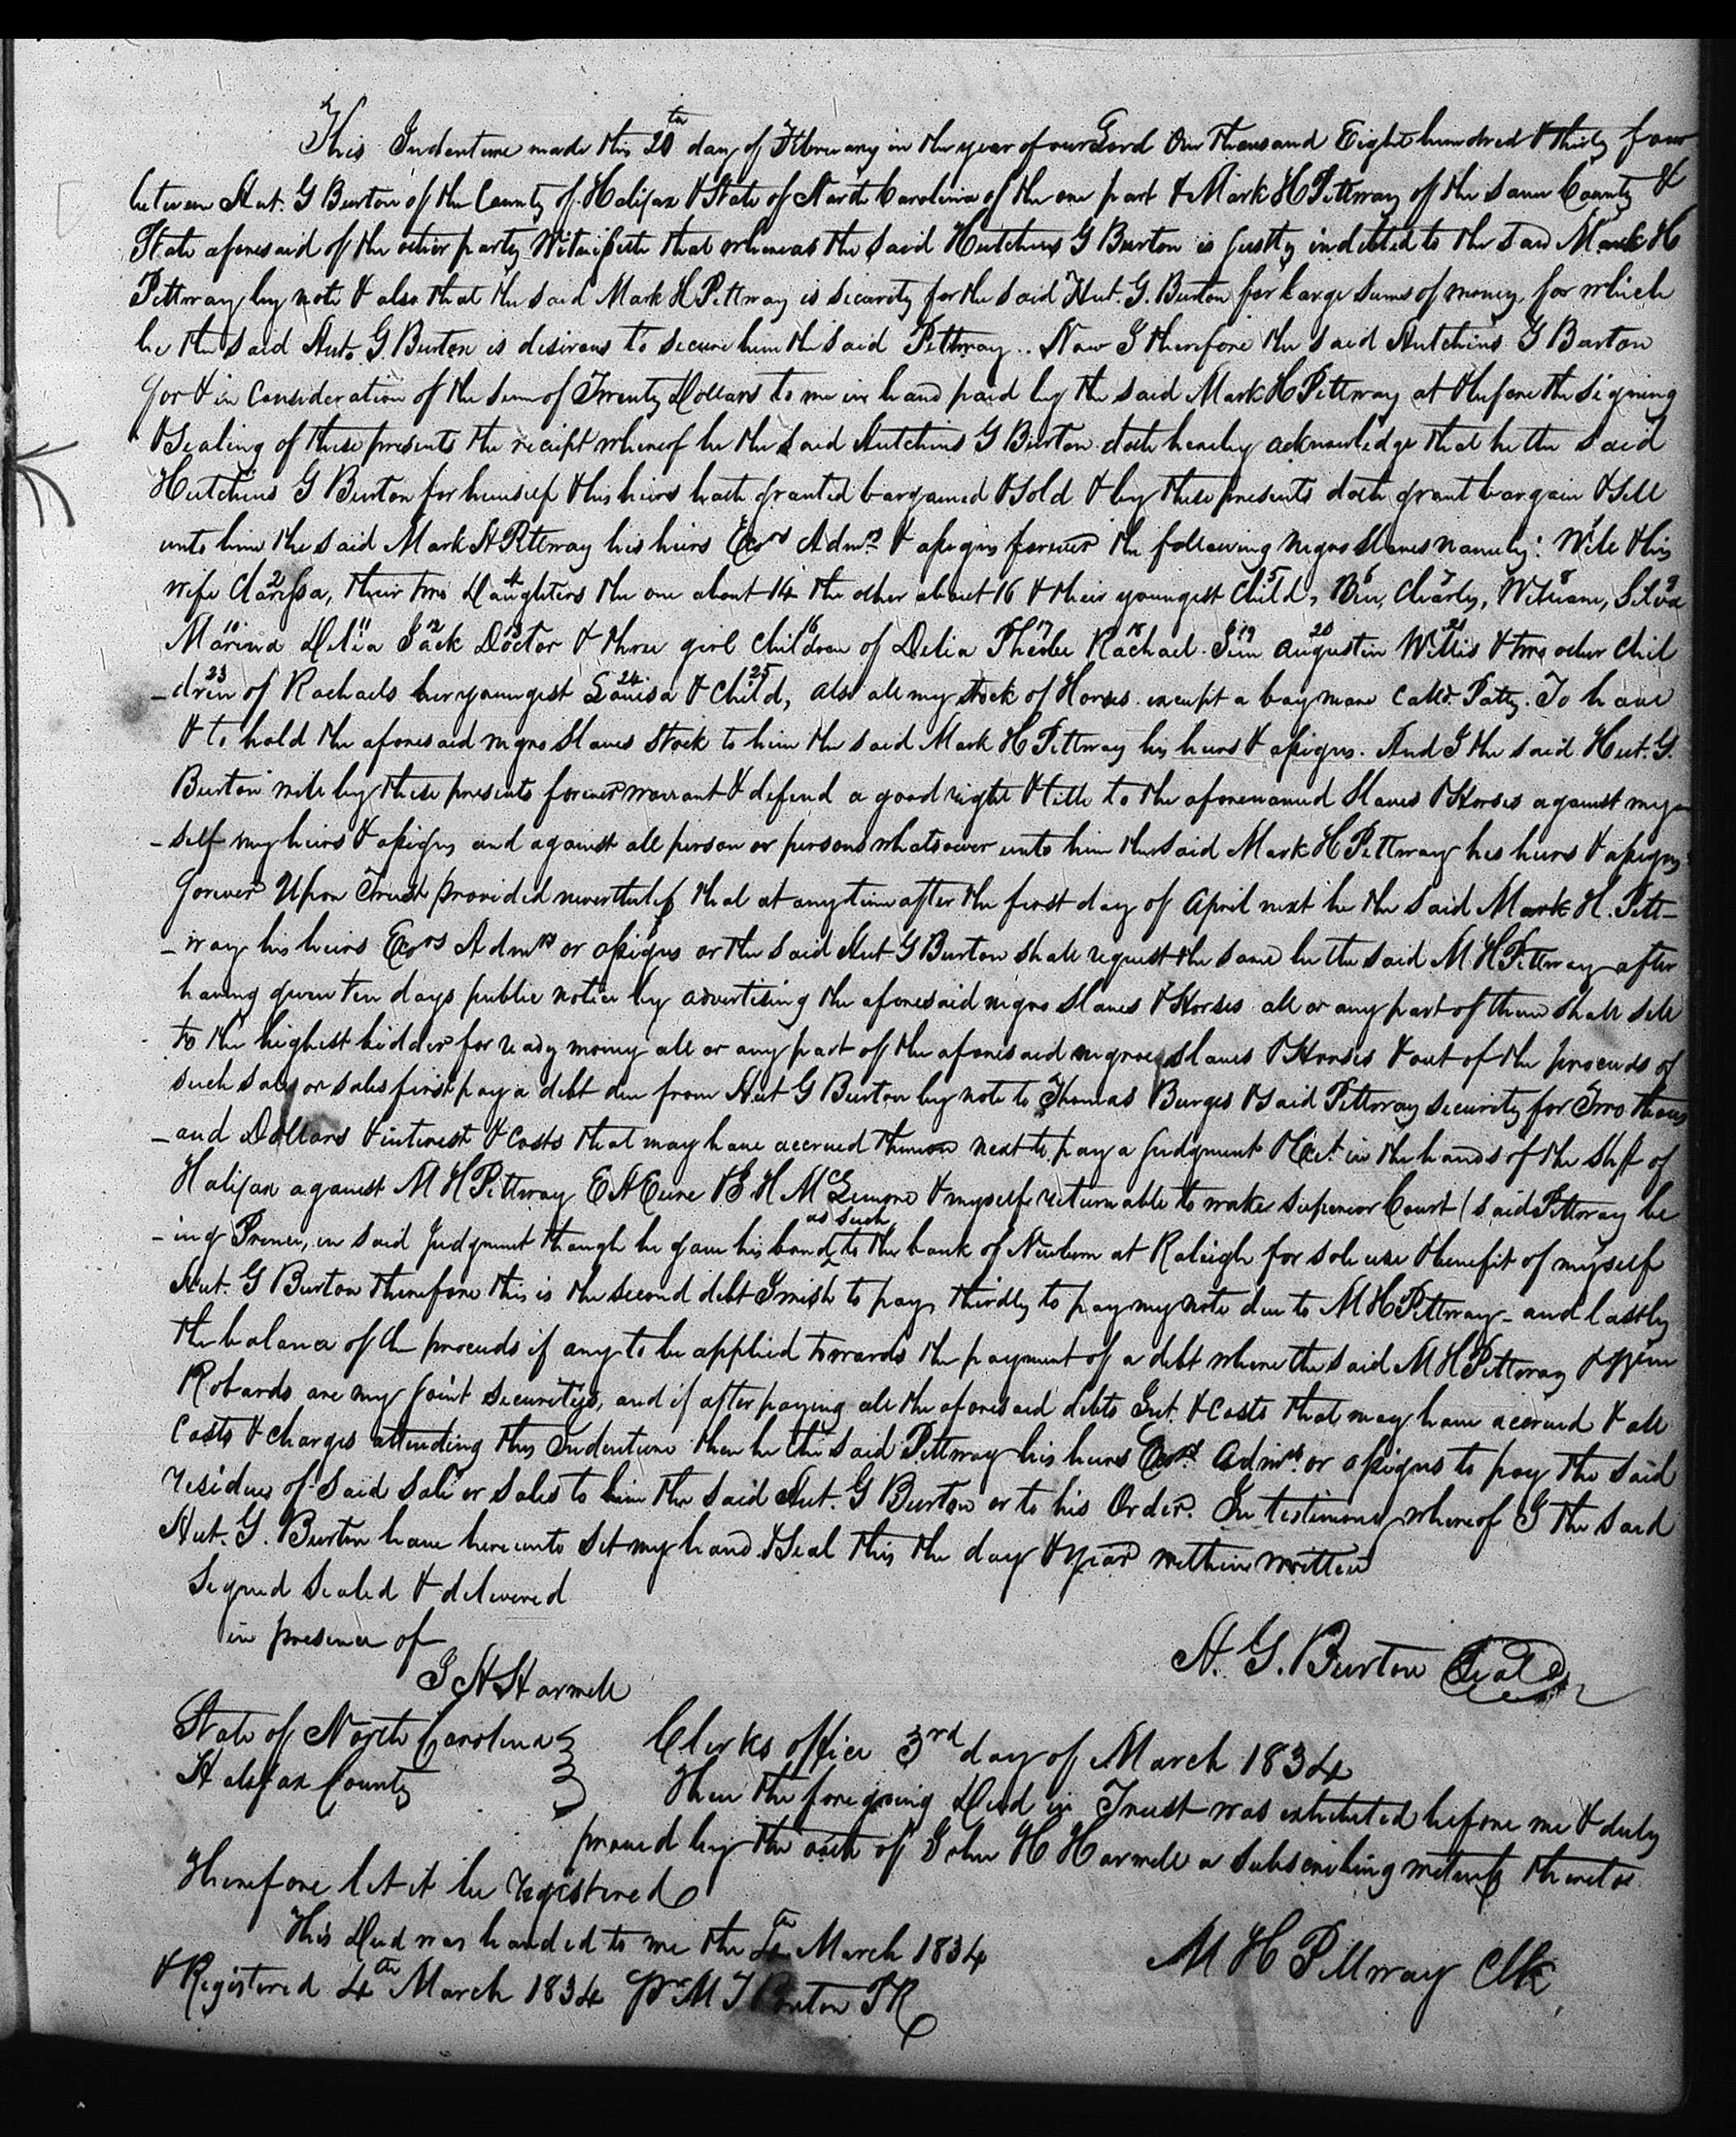 This Indenture made this 20th day of February in the year of our Lord One Thousand Eight hundred & thirty four
between Hut. G Burton of the County of Halifax & State of North Carolina of the one part & Mark H Pittway of the same County &
State aforesaid of the other party Witnesseth that whereas the said Hutchins G Burton is justly indebted to the said Mark H
Pittway by note & also that the said Mark H Pittway is security for the said Hut. G. Burton for large sums of money for which
he the said Hut. G. Burton is desirous to secure him the said Pittway.. Now I therefore the said Hutchins G Burton
for & in Consideration of the sum of Twenty Dollars to me in hand paid by the said Mark H Pittway at & before the signing
& Sealing of these presents the receipt whereof he the said Hutchins G Burton doth hereby acknowledge that he the said
Hutchins G Burton for himself & his heirs hath granted bargained & sold & by these presents doth grant bargain & sell
unto him the said Mark H Pittway his heirs Exrs Admrs & assigns forever the following negro Slaves namely: Wile & his
wife Clarissa, their two Daughters the one about 14 the other about 16 & their youngest Child, Ben, Charly, William, Silva
Marina Delia Jack Doctor & three girl children of Delia Pheobe Rachael Jim Augustin Willis & two other Chil
-dren of Rachaels her youngest Louisa & Child, also all my stock of Horses except a bay mare Calld. Patty. To have
& to hold the aforesaid negro Slaves Stock to him the said Mark H Pittway his heirs & assigns. And I the said Hut. G.
Burton will by these presents forever warrant & defend a good right & title to the aforenamed Slaves & Horses against my
-self my heirs & assigns and against all person or persons whatsoever unto him the said Mark H Pittway his heirs & assigns
forever Upon Trust provided nevertheless that at any time after the first day of April next he the said Mark H. Pitt-
-way his heirs Exrs Admrs or assigns or the said Hut G Burton shall request the same he the said M. H Pittway after
having given ten days public notice by advertising the aforesaid negro Slaves & Horses all or any part of them shall sell
to the highest bidder for ready money all or any part of the aforesaid negroe slaves & Horses & out of the proceeds of
such sale or sales first pay a debt due from Hut G Burton by note to Thomas Burges & said Pittway security for Two thous
-and Dollars & interest & Costs that may have accrued thereon next to pay a Judgment & Ext. in the hands of the Shff of
Halifax against M H Pittway E H & H McLemore & myself returnable to wake Superior Court (said Pittway be
-ing in said Judgment though he gave his bond as such to the bank of Newbern at Raleigh for sole use & benefit of myself
Hut. G Burton therefore this is the second debt I wish to pay, thirdly to pay my note due to M H Pittway - and lastly
the balance of the proceeds if any to be applied towards the payment of a debt where the said M H Pittway & Wm
Robards are my joint securitys, and if after paying all the aforesaid debts Int. & Costs that may have accrued & all
Costs & charges attending this Indenture then he the said Pittway his heirs Exrs. Admrs. or assigns to pay the said
residue of said sale or sales to him the said Hut. G Burton or to his Order. In testimony whereof I the said
Hut. G. Burton have hereunto set my hand & Seal this the day & year within written
Signed Sealed & delivered
in presence of
J H Harwell
H. G. Burton Seal
State of North Carolina
Halifax County
Clerks office 3rd day of March 1834
Then the foregoing Deed in Trust was exhibited before me & duly
proved by the oath of John H Harwell a subscribing witness thereto
Therefore let it be registered
M H Pittway Clk
This Deed was handed to me the 4th March 1834
& Registered 4th March 1834 pr M J Burton PR